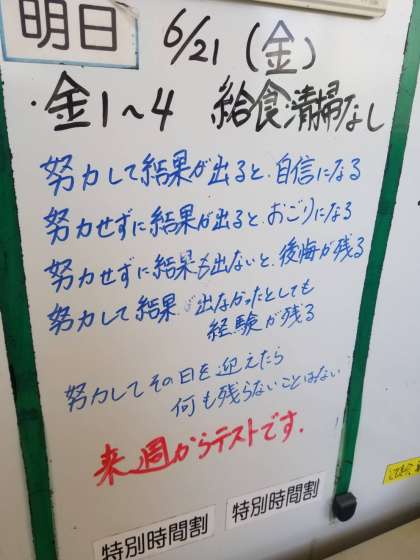 明日 6/21 (金)
・金1~4 給食・清掃なし
努力して結果が出ると、自信になる
努力せずに結果が出ると、おごりになる
努力せずに結果も出ないと、後悔が残る
努力して結果が出なかったとしても
経験が残る
努力してその日を迎えたら
何も残らないことはない
来週からテストです.
特別時間割 特別時間割